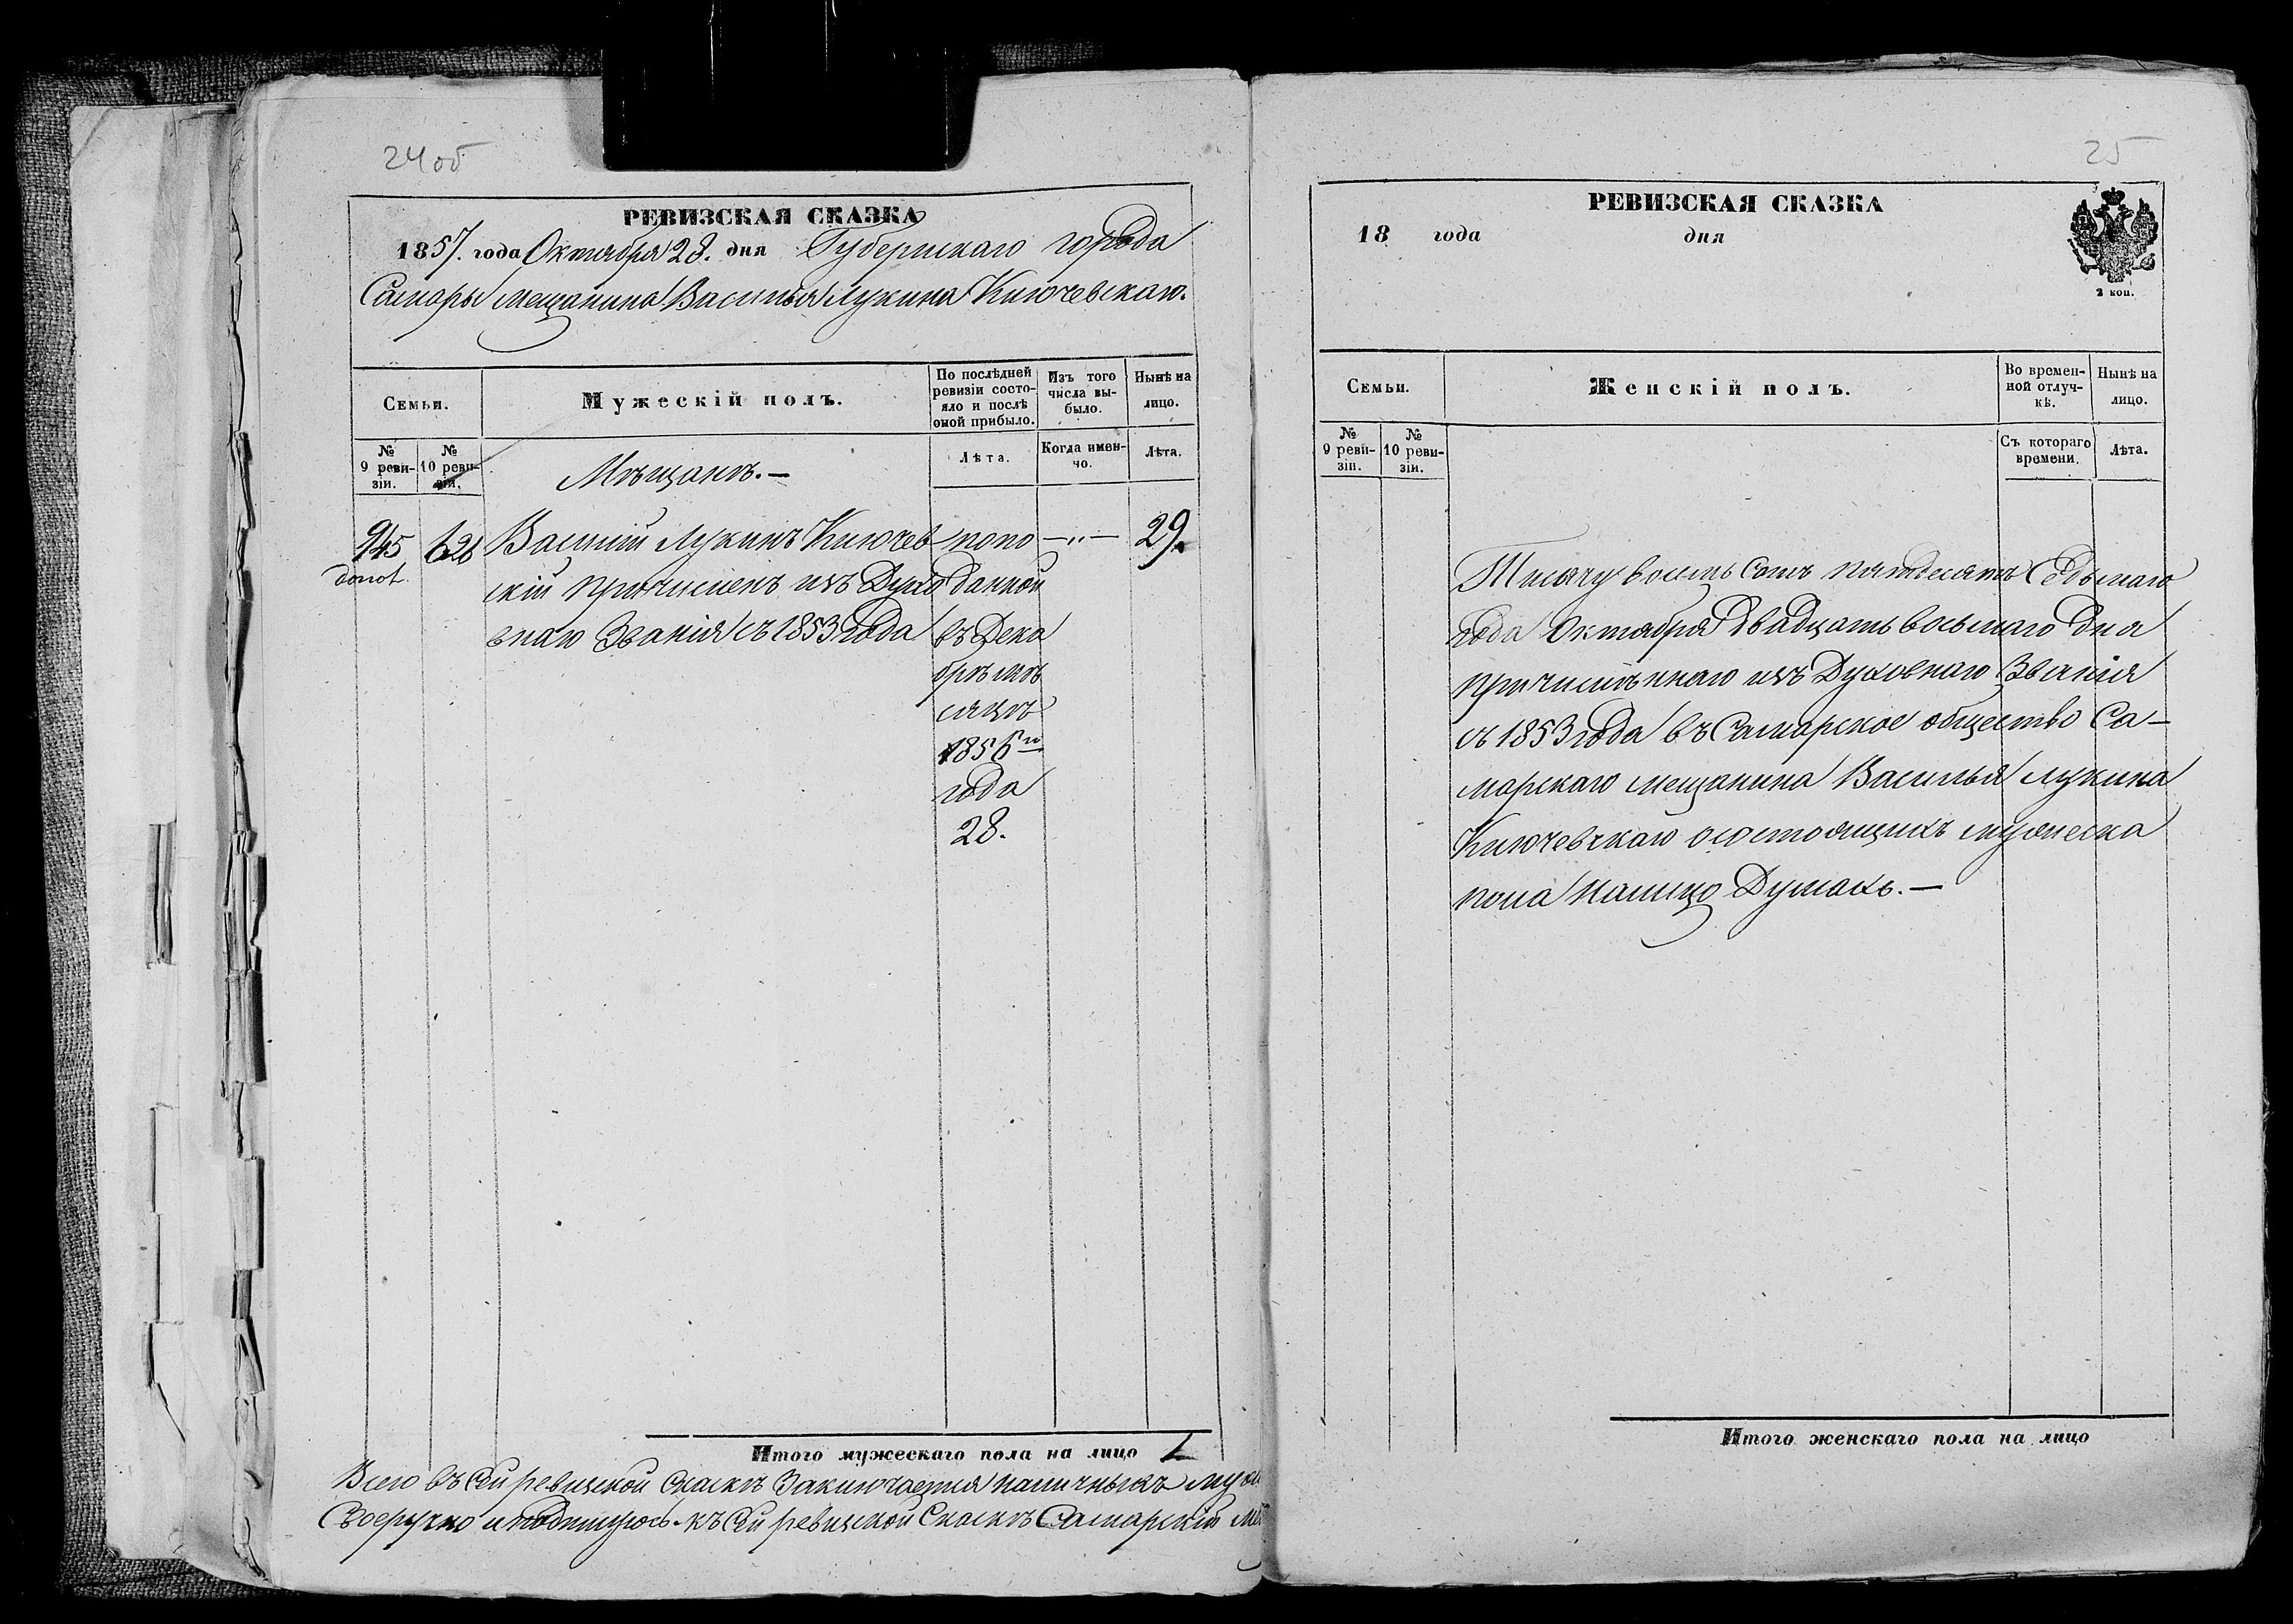 24об
РЕВИЗСКАЯ СКАЗКА
1857. года Октября 28. дня Губернскаго города
Самары мещанина Василья Лукина Ключевскаго.
Семьи.
Мужескій полъ.
По послѣдней ревизіи состояло и послѣ оной прибыло.
Изъ того числа выбыло.
Нынѣ на лицо.
№ 9 ревизіи.
№ 10 ревизіи.
Мѣщанъ.—
Лѣта.
Когда именно.
Лѣта.
945
допол.
Василій Лукинъ Ключев
скій причисленъ изъ Духо
внаго Званія съ 1853 года
попо
данной
въ Дека
брѣ мѣ
сяцѣ
1856го
года
28.
—„—
29.
Итого мужескаго пола на лицо 1
Всего въ сей ревизской Скаскѣ Заключается наличныхъ муж
Своеручно и подпишуюсь. къ сей ревизской Скаскѣ Самарскій
25
РЕВИЗСКАЯ СКАЗКА
18 года дня
2 коп.
Семьи.
Женскій полъ.
Во временной отлучкѣ.
Нынѣ на лицо.
№ 9 ревизіи.
№ 10 ревизіи.
Съ котораго времени.
Лѣта.
Тысячу восемь Сотъ пятдесятъ Седьмаго
года Октября Двадцать восьмаго Дня
причисленнаго изъ Духовнаго Званія
съ 1853 года въ Самарское общество Са-
марскаго мещанина Василья Лукина
Ключевскаго осостоящихъ мужеска
пола налицо Душахъ.—
Итого женскаго пола на лицо